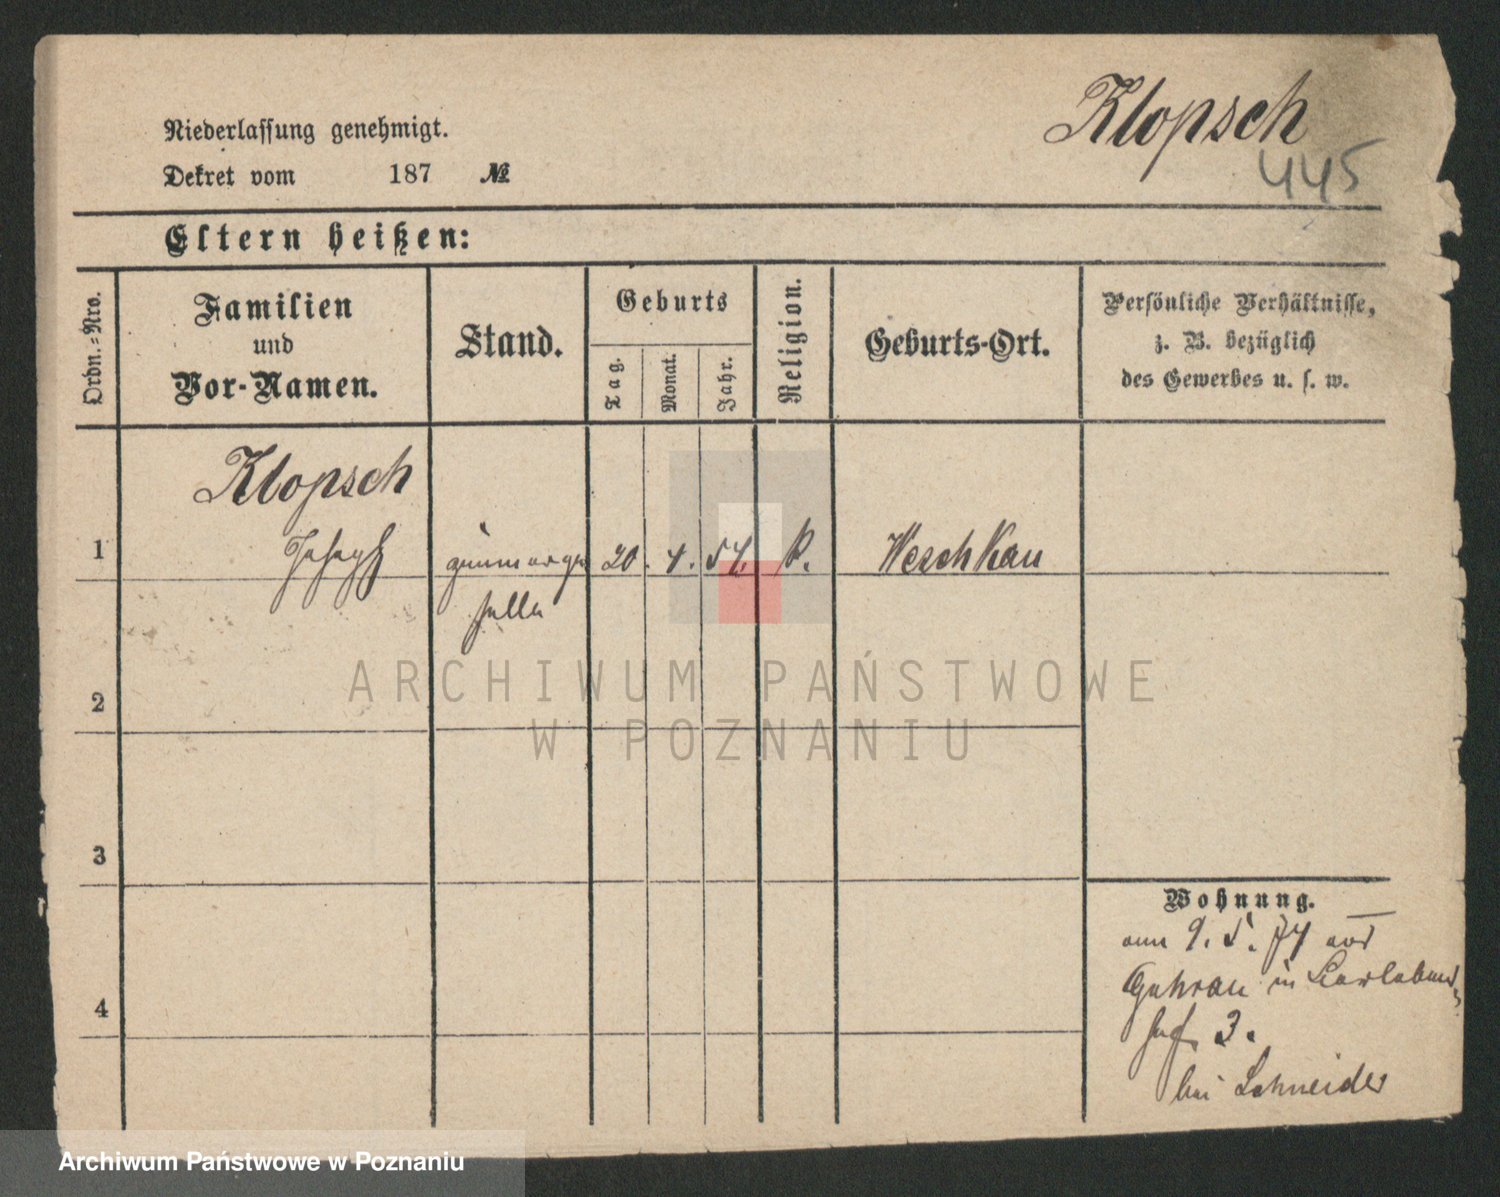 Klopsch
445
Niederlassung genehmigt.
Dekret vom 187 №
Eltern heißen:
Ordn.-Nro.
Familien
und
Vor-Namen.
Stand.
Geburts
Tag.
Monat.
Jahr.
Religion.
Geburts-Ort.
Persönliche Verhältnisse,
z. B. bezüglich
des Gewerbes u. s. w.
Klopsch
1 Joseph 20. 4. 54. K. Weschkau
2
3
4
ARCHIWUM PAŃSTWOWE
W POZNANIU
Wohnung.
am 9. 5. 74 aus
Guhrau in
3.
bei Schneider
Archiwum Państwowe w Poznaniu